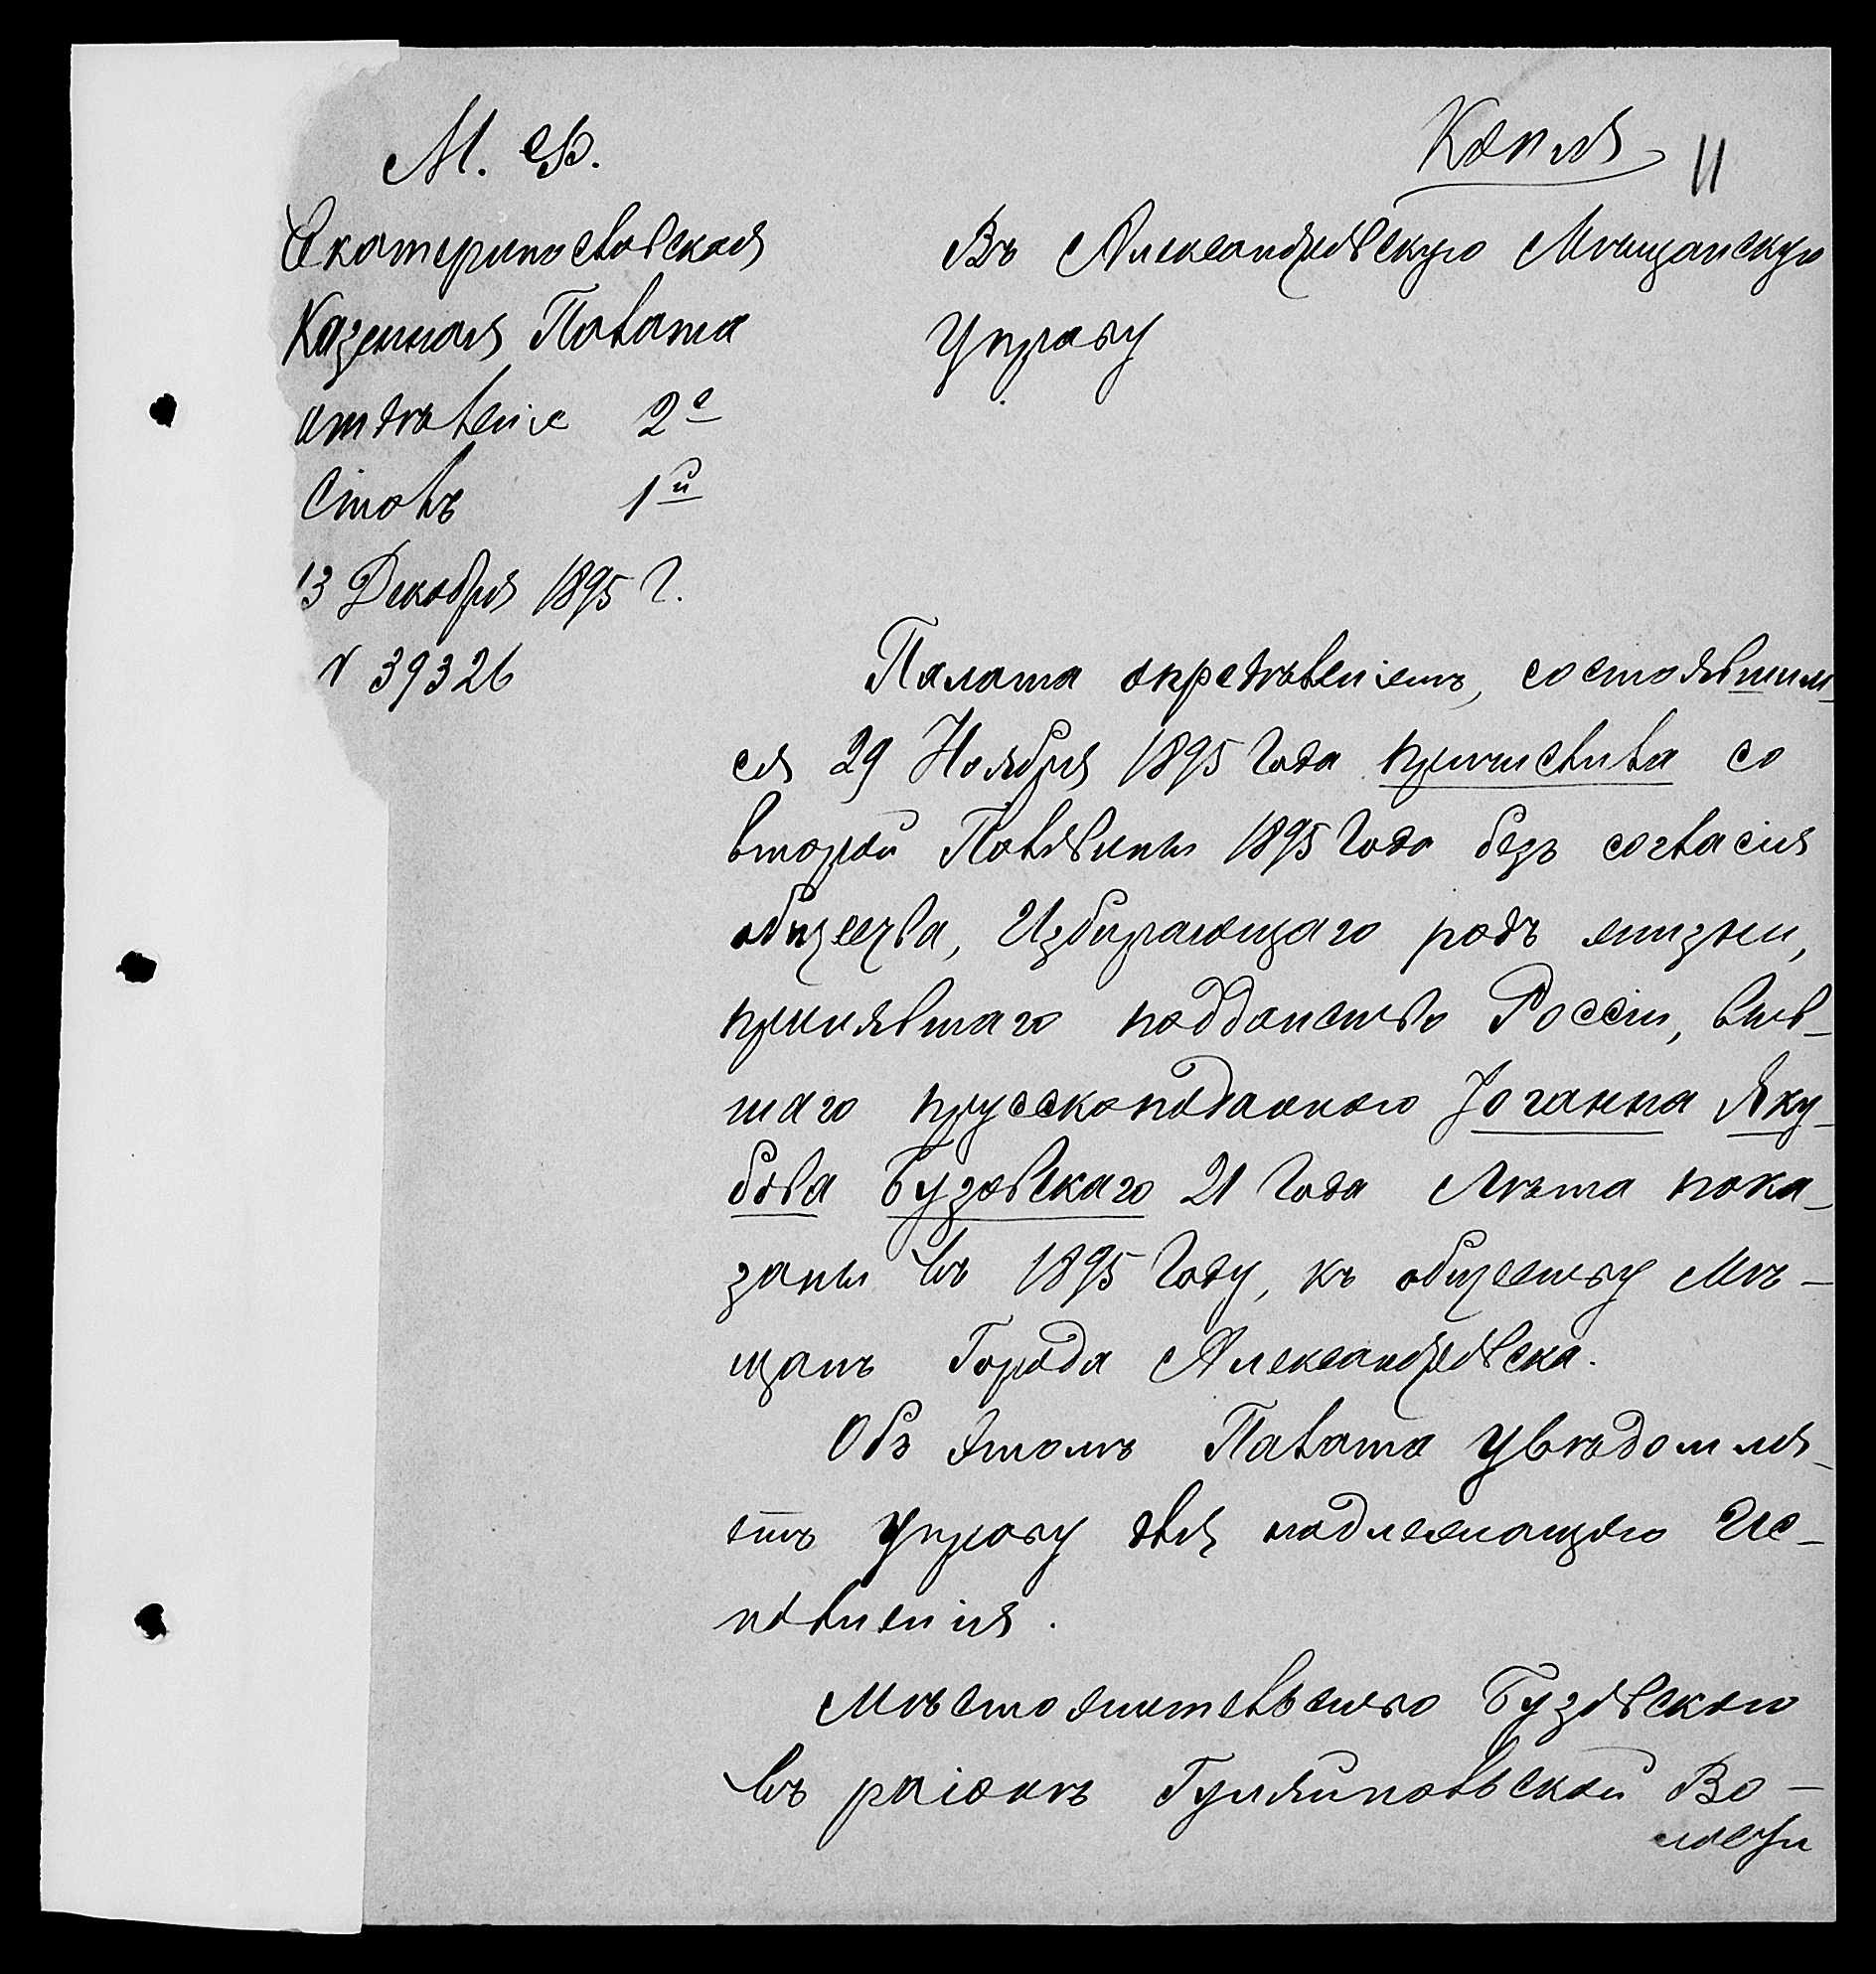 М. Ф.
Копия
11
Екатеринославская
Казенная Палата
отдѣленіе 2е
Столъ 1й
13 Декабря 1895 г.
N 39326
Въ Александровскую Мѣщанскую
Управу
Палата опредѣленіемъ, состоявшим-
ся 29 Ноября 1895 Года причислила со
второй Половины 1895 Года безъ согласія
общества, Избирающаго родъ жизни,
принявшаго подданство Россіи, быв-
шаго прусскоподданного Іоганна Яку-
бова Бузовскаго 21 Года Лѣта пока-
заны въ 1895 Году, къ обществу Мѣ-
щанъ Города Александровска.
Объ этомъ Палата увѣдомля-
етъ Управу для надлежащого Ис-
полненія.
Мѣстожительство Бузовского
въ раіонѣ Гуляйпольской Во-
лости